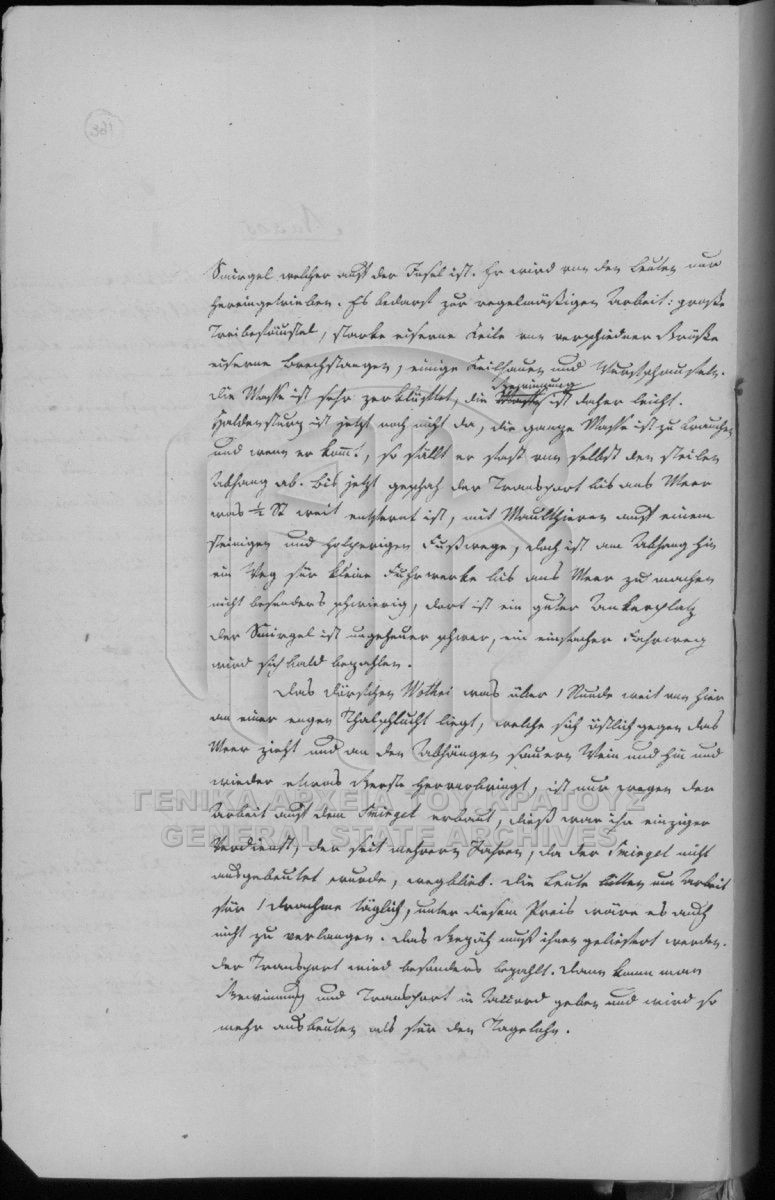 Smirgel welcher auf der Insel ist. Er wird von den Leuten nur
hereingetrieben. Es bedarf zur regelmäßigen Arbeit: große
Treibefäustel, starke eiserne Keile von verschiedner Größe
eiserne Brechstangen, einige Keilhauen und
Die Masse ist sehr zerklüftet, die Gewinnung ist daher leicht.
Haldensturz ist jetzt noch nicht da, die ganze Masse ist zu brauchen
und wenn er kommt, so fällt er fast von selbst den steilen
Abhang ab. Bis jetzt geschah der Transport bis ans Meer
was ½ St weit entfernt ist, mit Maulthieren auf einem
steinigen und holperigen Fußwege, doch ist am Abhang hin
ein Weg für kleine Fuhrwerke bis ans Meer zu machen
nicht besonders schwierig, dort ist ein guter Ankerplatz
der Smirgel ist ungeheuer schwer, ein einfacher Fahrweg
wird sich bald bezahlen.
Das Dörfchen Wothri was über 1 Stunde weit von hier
an einer engen Thalschlucht liegt, welche sich östlich gegen das
Meer zieht und an den Abhängen sauern Wein und hin und
wieder etwas Gerste hervorbringt, ist nur wegen der
Arbeit auf dem Smirgel erbaut, dieß war ihr einziger
Verdienst, der seit mehrern Jahren, da der Smirgel nicht
ausgebeutet wurde, wegblieb. Die Leute bitten um Arbeit
für 1 Drachme täglich, unter diesem Preis wäre es auch
nicht zu verlangen. Das Gezäh muß ihnen geliefert werden.
Der Transport wird besonders bezahlt. Dann kann man
Gewinnung und Transport in Accord geben und wird so
mehr ausbeuten als für den Tagelohn.
ΓΕΝΙΚΑ ΑΡΧΕΙΑ ΤΟΥ ΚΡΑΤΟΥΣ
GENERAL STATE ARCHIVES